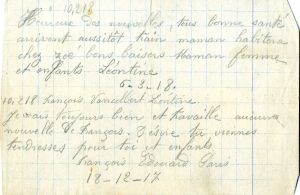 " 10,218
Heureuse des nouvelles, tous bonne santé
arrivent aussitôt train maman habitera
chez Zoé bons baisers Maman femme
et enfants Léontine
6-3-18.
10,218 François, Vancellert Léontine
Je vais toujours bien et travaille aucune
nouvelle De François. J'espère tu viennes
tendresses pour toi et enfants
François Edouard Paris
18-12-17